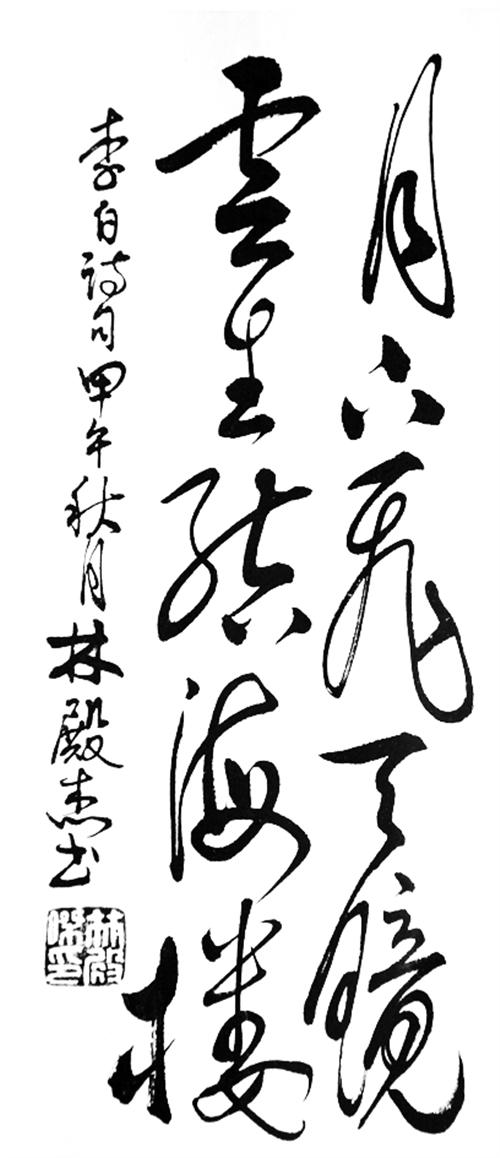 月下飛天鏡
雲生結海樓
李白詩句甲午秋月林殿杰书
林殿傑印